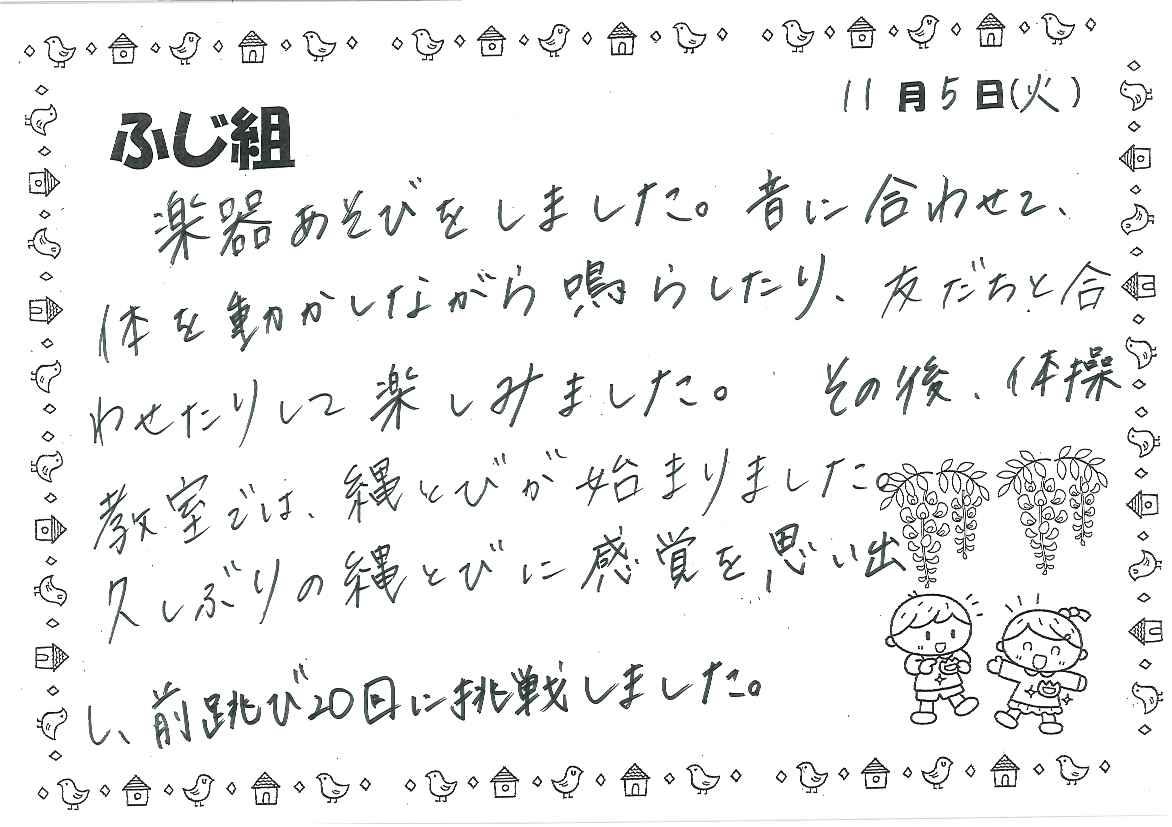 11月5日(火)
ふじ組
楽器あそびをしました。音に合わせて、
体を動かしながら鳴らしたり、友だちと合
わせたりして楽しみました。その後、体操
教室では、縄とびが始まりました。
久しぶりの縄とびに感覚を思い出
し、前跳び20回に挑戦しました。